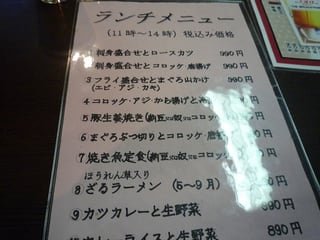 ランチメニュー
(11時～14時) 税込み価格
刺身盛合せとロースカツ 990円
刺身盛合せとコロッケ・唐揚げ 990円
3 フライ盛合せとまぐろ山かけ 990円
(エビ・アジ・カキ)
4 コロッケ・アジ・から揚げと冷
5 豚生姜焼き(納豆又は奴又はコロッケ
6 まぐろぶつ切りとコロッケ・唐揚
7 焼き魚定食(納豆又は奴又はコロッケ
ほうれん草入り
8 ざるラーメン (5～9月) 円
9 カツカレーと生野菜 890円
ライスと生野菜 890円